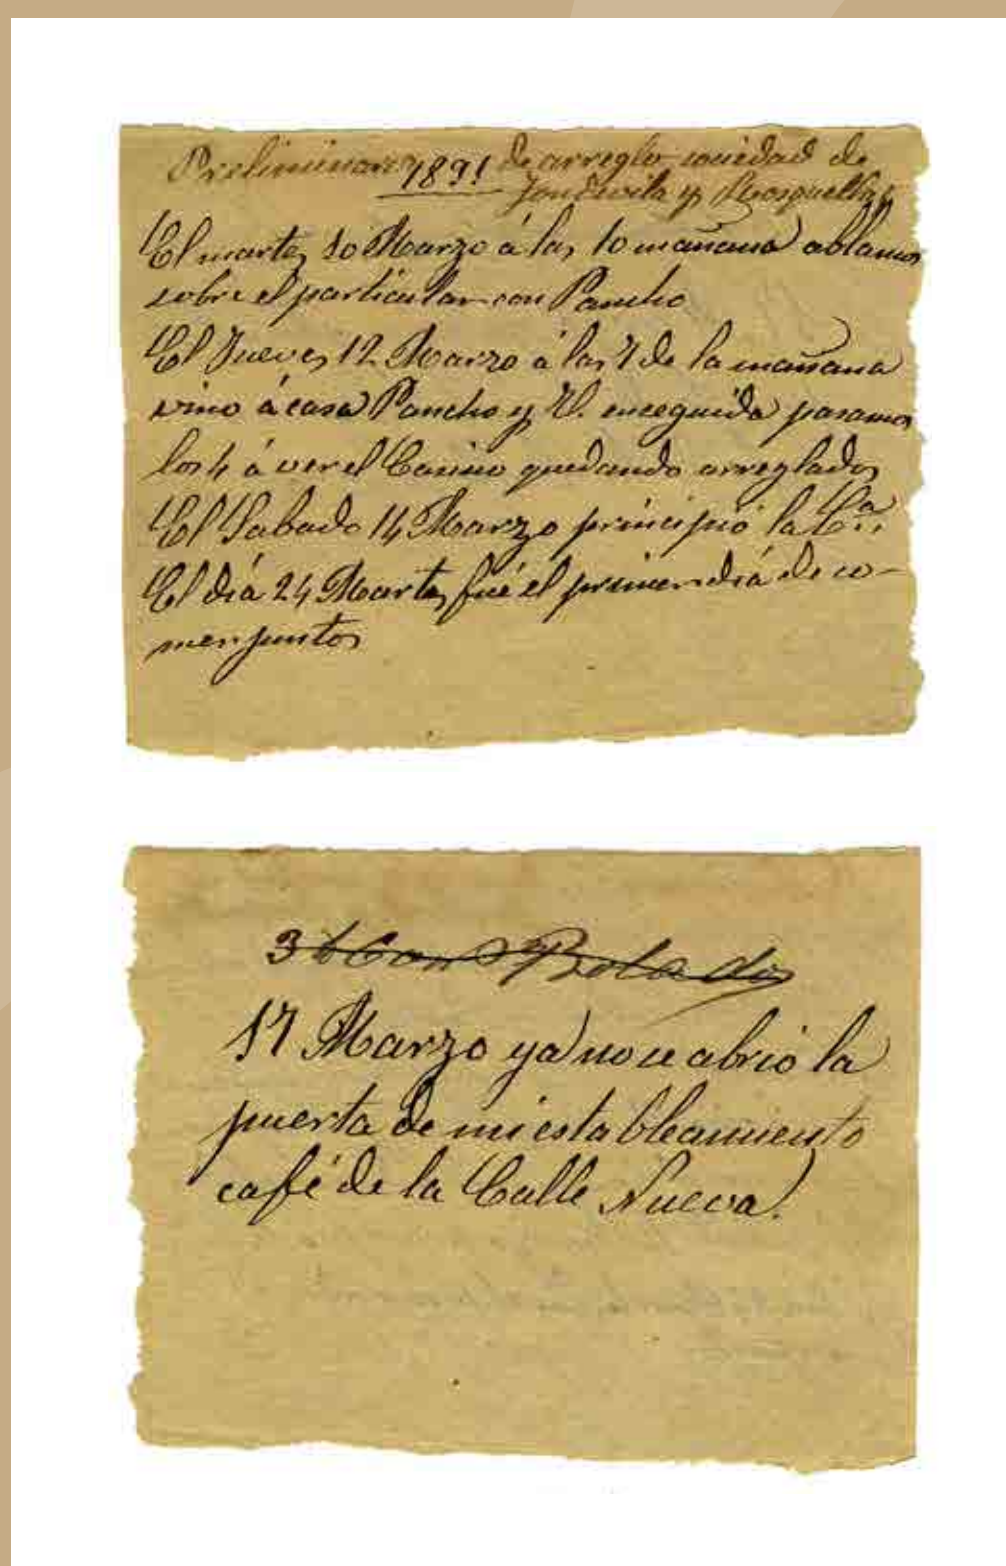 Preliminares 1891 de arreglo sociedad de
Fondevila y Mosquella
El martes 10 Marzo á las 10 mañana ablamos
sobre el particular con Pancho
El Jueves 12 Marzo á las 7 de la mañana
vino á casa Pancho y enseguida pasamos
los 4 á ver el Casino quedando arreglados
El Sabado 14 Marzo principió la Cª.
El día 24 Martes fué el primer día de co-
mer juntos
17 Marzo ya no se abrió la
puerta de mi establecimiento
café de la Calle Nueva.